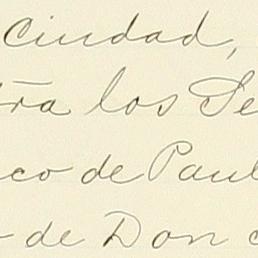 Ciudad,
tra los Se
co de Paul
de Don